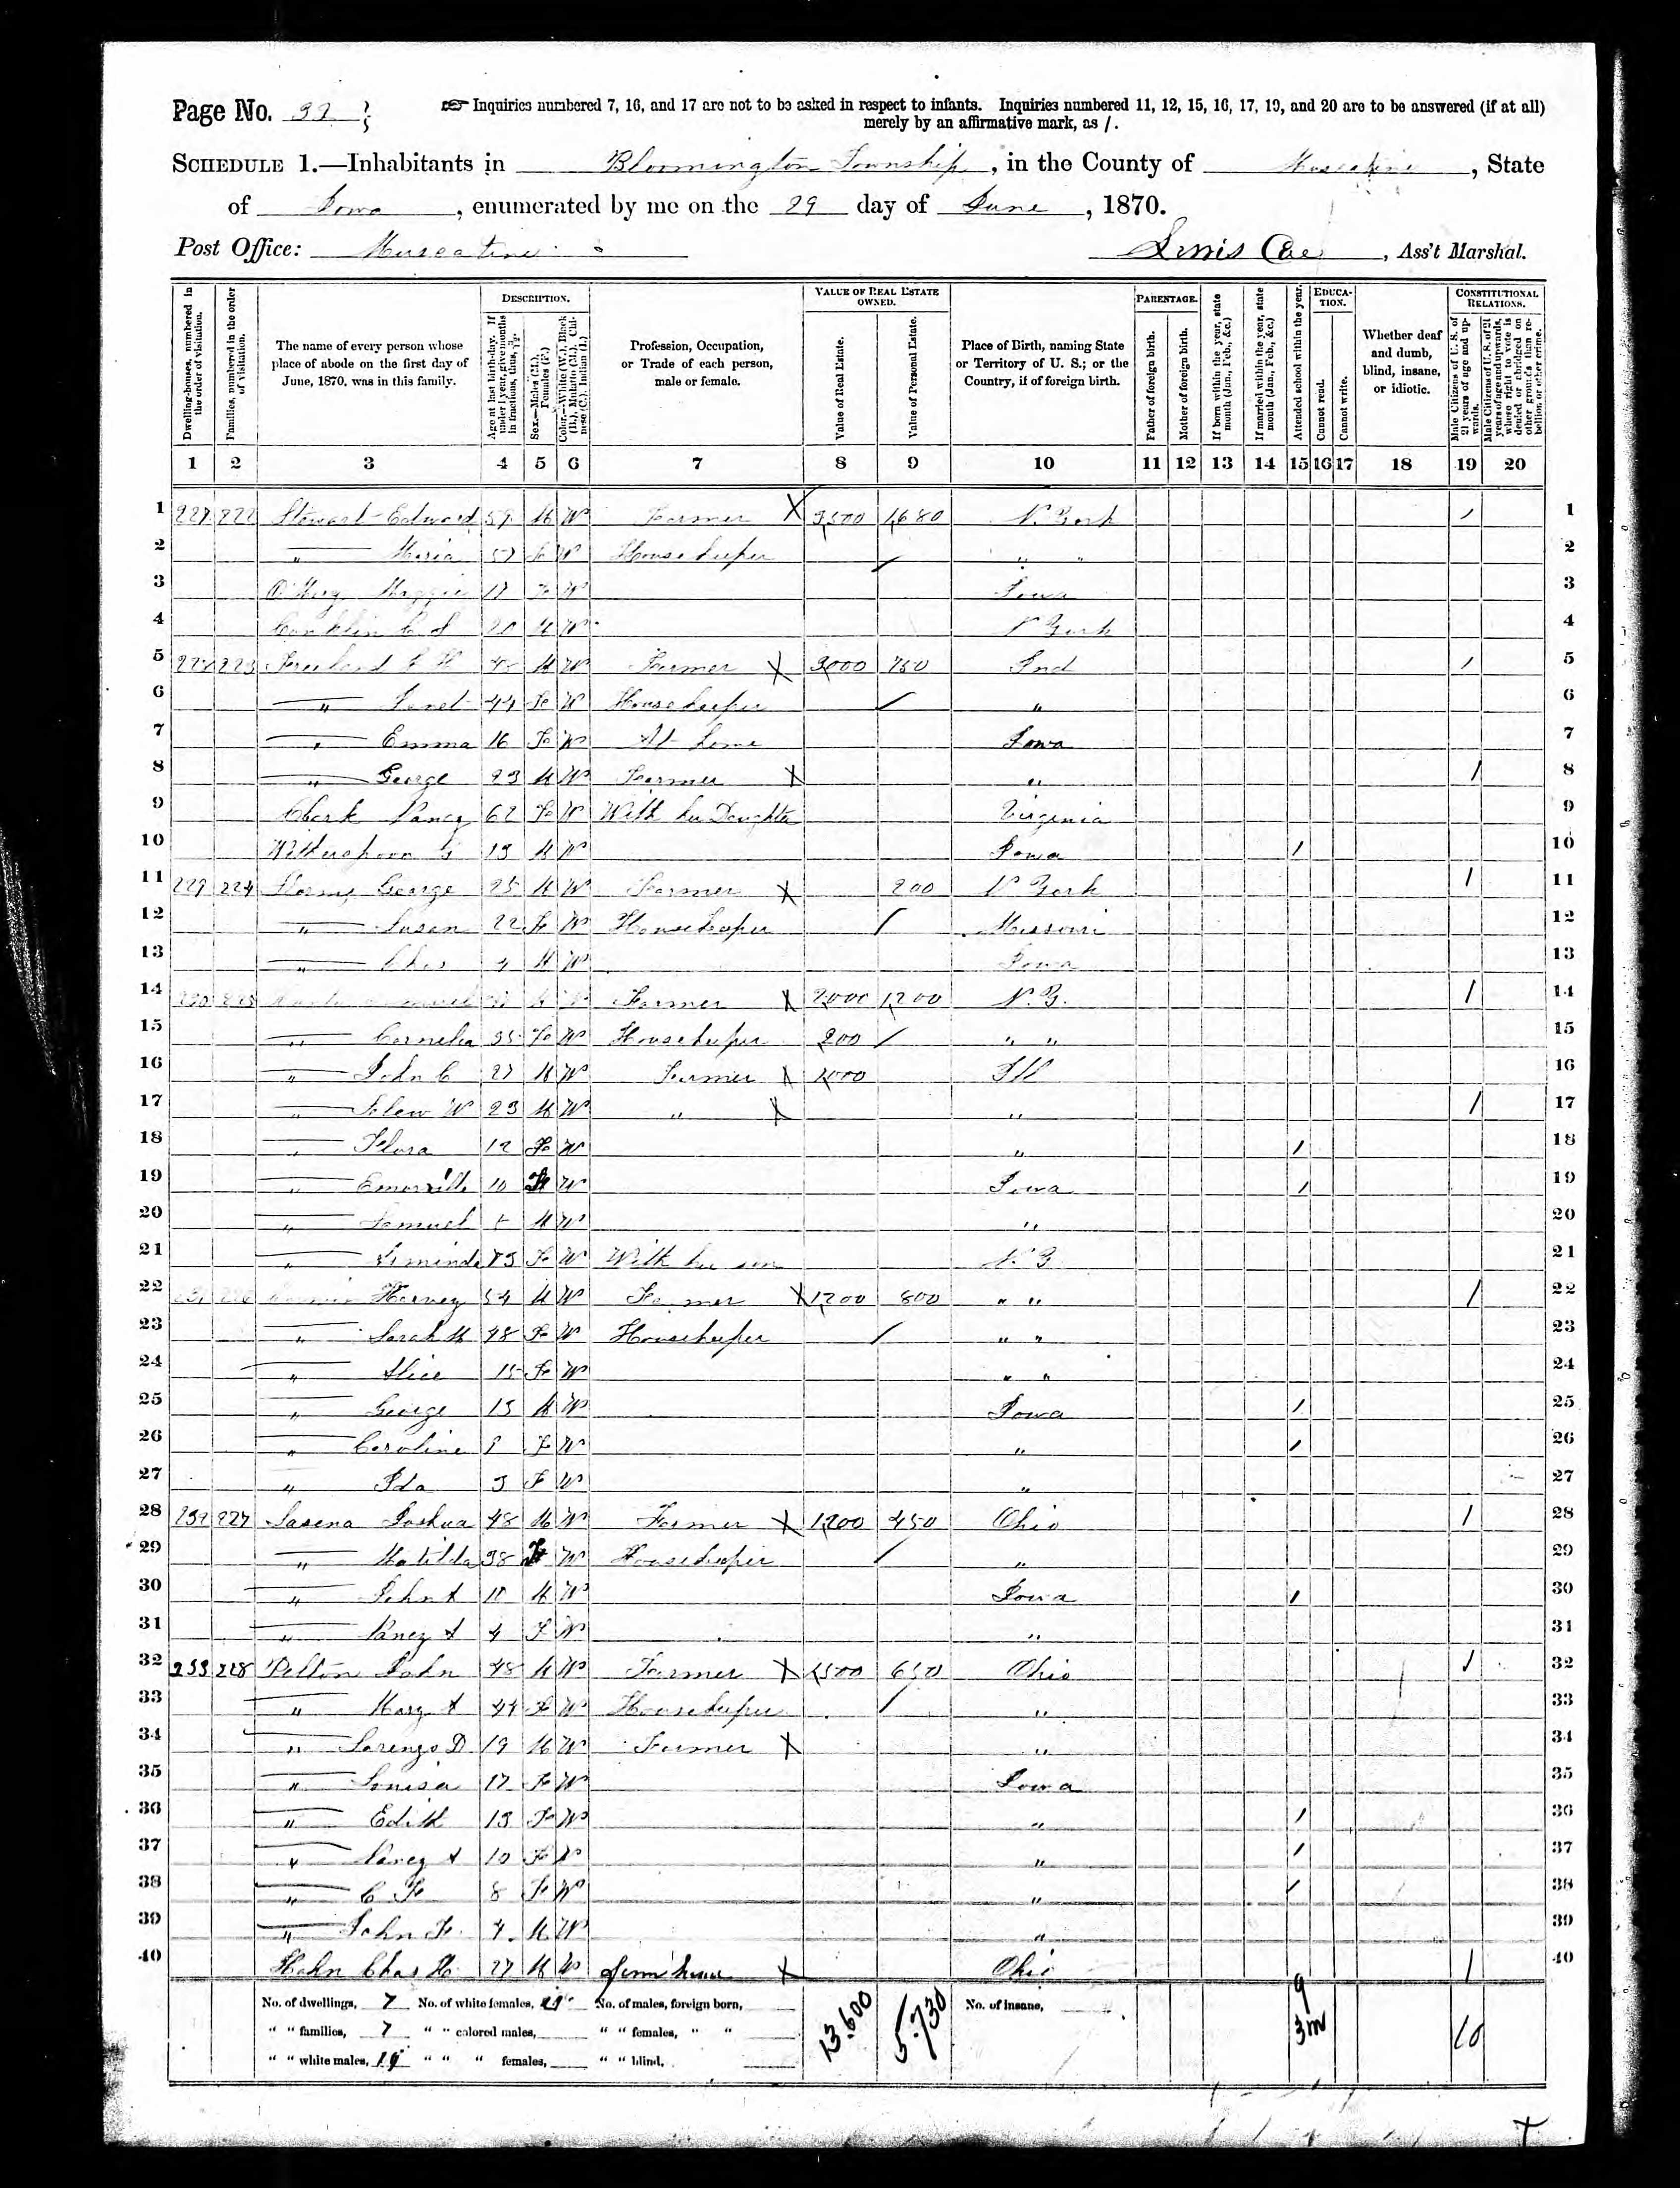 Page No. 32
☞ Inquiries numbered 7, 16, and 17 are not to be asked in respect to infants. Inquiries numbered 11, 12, 15, 16, 17, 19, and 20 are to be answered (if at all)
merely by an affirmative mark, as /.
SCHEDULE 1.—Inhabitants in Bloomington Township, in the County of Muscatine, State
of Iowa, enumerated by me on the 29 day of June, 1870.
Post Office: Muscatine
Ass't Marshal.
Dwelling-houses, numbered in the order of visitation.
Families, numbered in the order of visitation.
The name of every person whose place of abode on the first day of June, 1870, was in this family.
DESCRIPTION.
Age at last birth-day. If under 1 year, give months in fractions, thus,
Sex.—Males (M.), Females (F.)
Color.—White (W.), Black (B.), Mulatto (M.), Chinese (C.), Indian (I.)
Profession, Occupation, or Trade of each person, male or female.
VALUE OF REAL ESTATE OWNED.
Value of Real Estate.
Value of Personal Estate.
Place of Birth, naming State or Territory of U. S.; or the Country, if of foreign birth.
PARENTAGE.
Father of foreign birth.
Mother of foreign birth.
If born within the year, state month (Jan., Feb., &c.)
If married within the year, state month (Jan., Feb., &c.)
Attended school within the year.
EDUCATION.
Cannot read.
Cannot write.
Whether deaf and dumb, blind, insane, or idiotic.
CONSTITUTIONAL RELATIONS.
Male Citizens of U. S. of 21 years of age and upwards.
Male Citizens of U. S. of 21 years of age and upwards, where right to vote is denied or abridged on other grounds than rebellion or other crime.
1 2 3 4 5 6 7 8 9 10 11 12 13 14 15 16 17 18 19 20
1 227 222 Stewart Edward 59 M W Farmer X 3,500 1,680 N. York / 1
2 " Maria 57 F W Housekeeper / " " 2
3 Maggie 17 F W Iowa 3
4 Conklin 20 M W N York 4
5 228 223 Freeland C H M W Farmer X 3,000 750 Ind / 5
6 " Janet 44 F W Housekeeper / " 6
7 " Emma 16 F W At home Iowa 7
8 " George 23 M W Farmer X " / 8
9 Clark Nancy 62 F W With her Daughter Virginia 9
10 Witherspoon G 13 M W Iowa / 10
11 229 224 George 25 M W Farmer X 200 N York / 11
12 " Susan 22 F W Housekeeper / Missouri 12
13 " Chas 4 M W Iowa 13
14 230 225 Farmer X 2,000 1,200 N. Y. / 14
15 " Cornelia F W Housekeeper 200 / " " 15
16 " John C 27 M W Farmer X 1,000 Ill 16
17 " W 23 M W " X " / 17
18 " Flora 12 F W " / 18
19 " 10 W Iowa / 19
20 " Samuel M W " 20
21 " F W With her son N. Y. 21
22 231 226 Harvey 54 M W Farmer X 1,200 800 " " / 22
23 " Sarah M 48 F W Housekeeper / " " 23
24 " Alice 15 F W " " 24
25 " George 13 M W Iowa / 25
26 " Caroline F W " / 26
27 " Ida 3 F W " 27
28 232 227 Sasena Joshua 48 M W Farmer X 1,200 450 Ohio / 28
29 " Matilda 38 F W Housekeeper / " 29
30 " John A 10 M W Iowa / 30
31 " Nancy A 4 F W " 31
32 233 228 Pelton John 48 M W Farmer X 1,500 650 Ohio / 32
33 " Mary A 44 F W Housekeeper / " 33
34 " Lorenzo D 19 M W Farmer X " 34
35 " Louisa 17 F W Iowa 35
36 " Edith 13 F W " / 36
37 " Nancy A 10 F W " / 37
38 " C F 8 F W " / 38
39 " John F. 4 M W " 39
40 Hahn Chas H. 27 M W X Ohio / 40
No. of dwellings, 7 No. of white females, 21 No. of males, foreign born, 13,600 5,730 No. of insane, 9
" " families, 7 " " colored males, " " females, " " 3m 10
" " white males, 19 " " " females, " " blind,